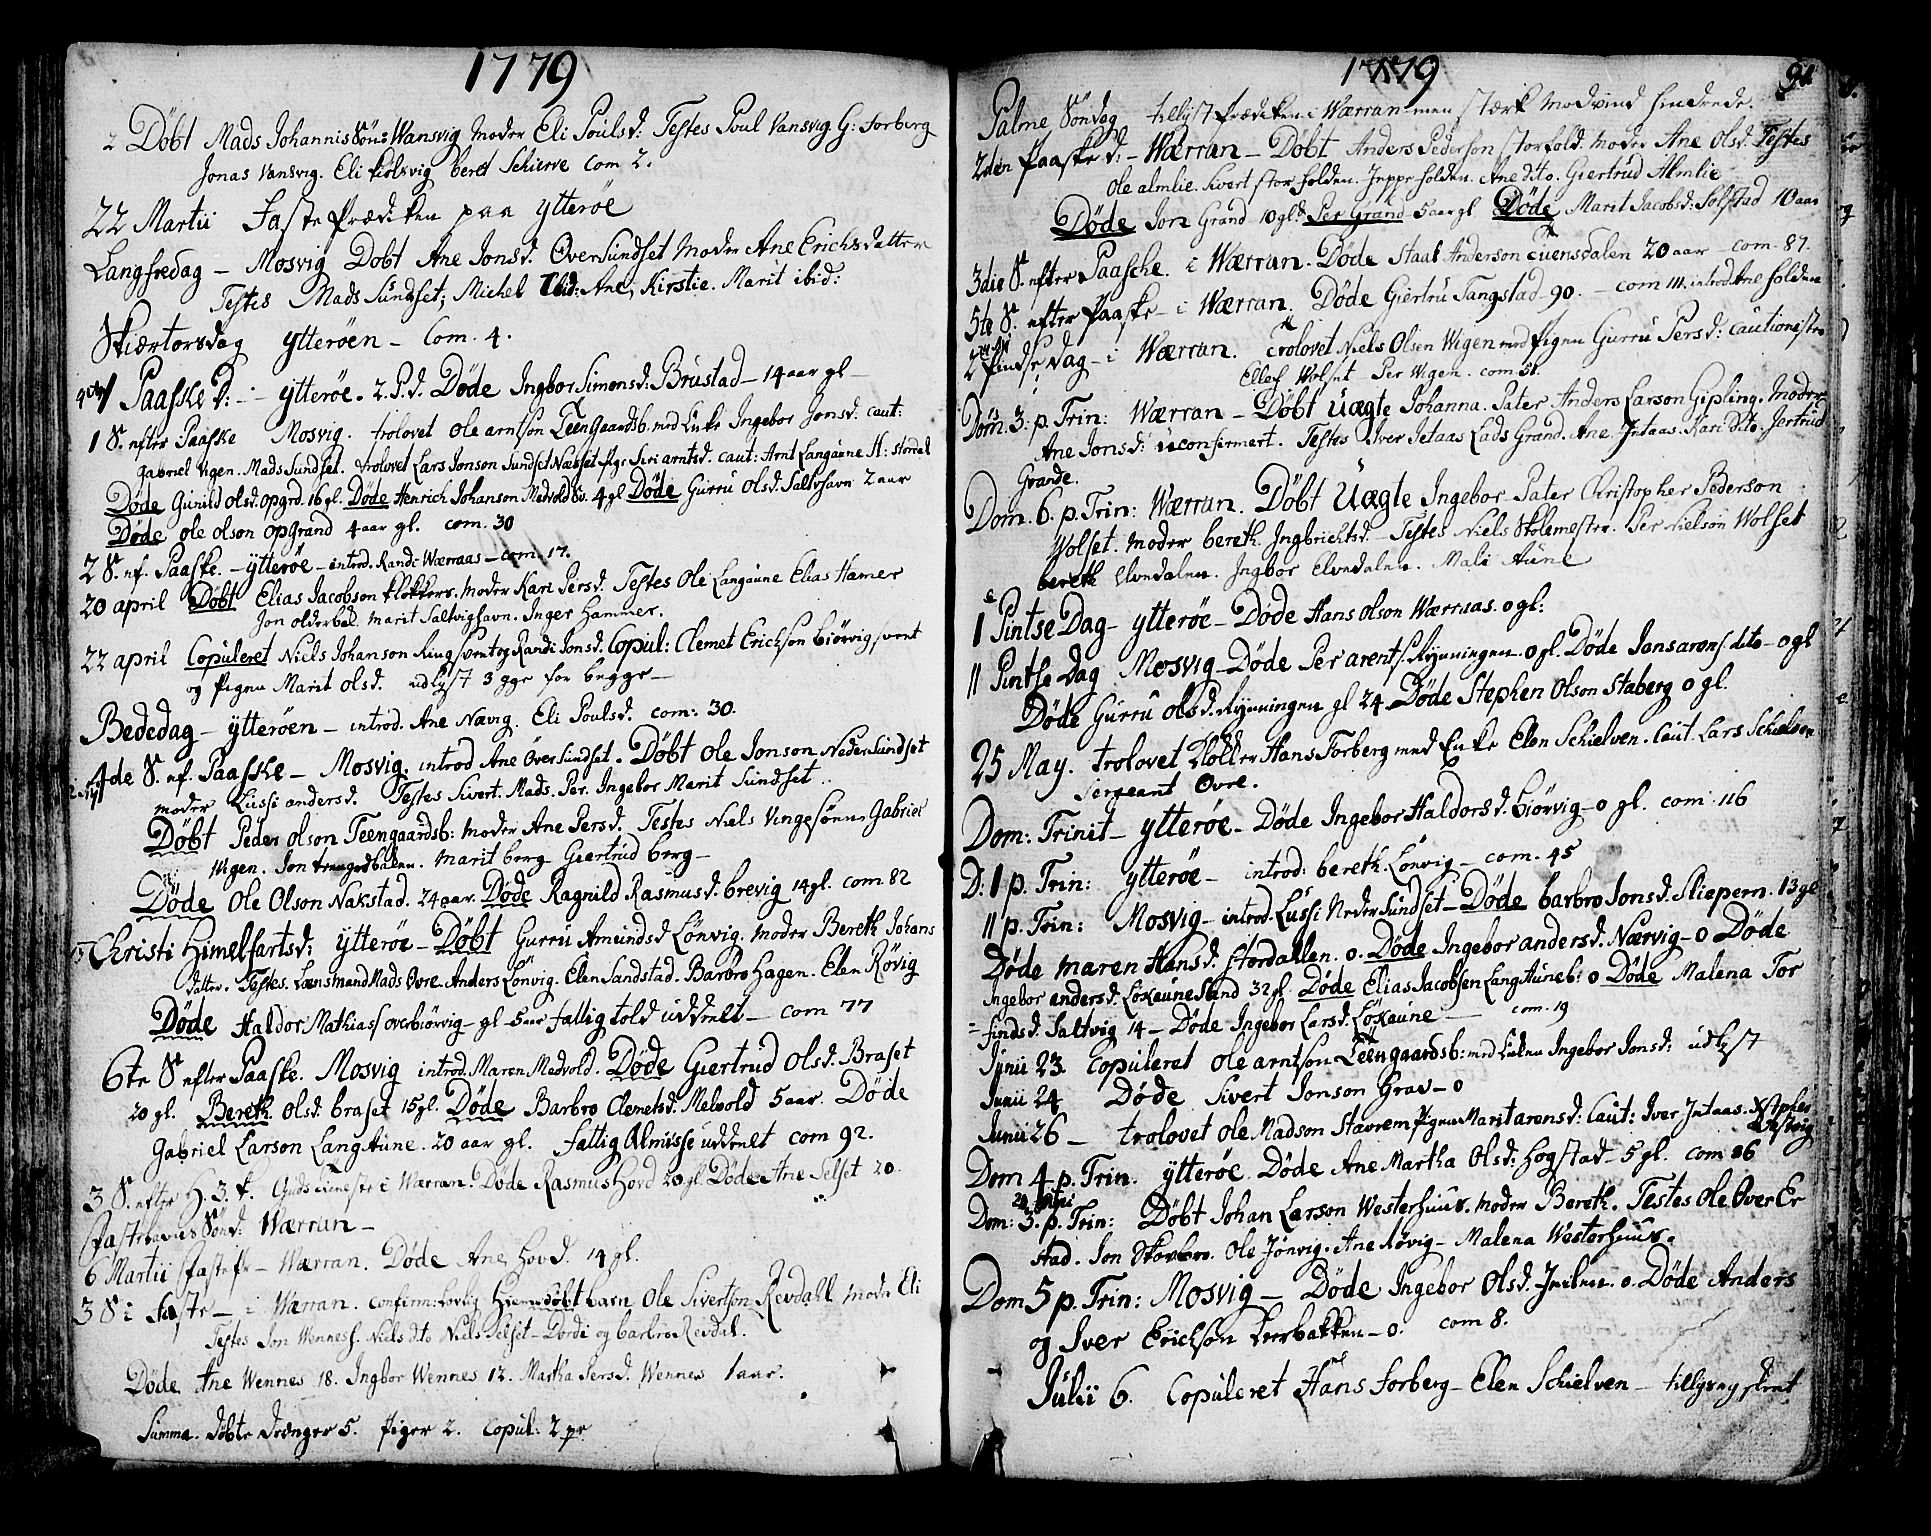 1779
Döbt Mads Johannis Sön: Wansvig Moder Eli Pouls d: Testes Poul Vansvig G: forberg
Jonas Vansvig. Eli beret Schierve Com 2.
22 Martii Faste Prædiken paa ytteröe
Langfredag – Mosvig Dobt Ane Jonsd. Over Sundset Moder Ane Erichsdatter
Testes Mads Sundset; Michel Ibid: Ane, Kirstie. Marit ibid:
Skiærtorsdag ytteröen – Com. 4.
1 Paasked: – ytteröe. 2. P.d. Döde Ingbor Simonsd. Brustad – 14 aar gl –
1 S. efter Paaske Mosvig. trolovet Ole arntson Teengaardsb. med Enke Ingebor Jonsd. caut:
gabriel Vigen. Mads Sundset. trolovet Lars Jonson Sundset Næsset pige Siri arntsd. caut: Arnt Langaune
Döde Gunild Olsd. Opgrd. 16 gl. Döde Henrich Johanson Medvold 4 gl Döde Gurru Olsd. Saltvhavn 2 aar
Döde ole olson opgrand 4 aar gl. com. 30
2 S. ef. Paaske. – ytteröe – introd. Randi Wærraas – com. 17.
20 april Döbt Elias Jacobson Klokkers. Moder Kari Persd. Testes Ole Langaune Elias Hamer
Jon olderbal Marit Saltvighavn. Inger Hammer.
22 april Copuleret Niels Johanson Ring svent og Randi Jonsd. Copul: Clemet Erickson biörvig svent
og Pigen Marit Olsd. udlyst 3 gge for begge –
Bededag – ytteröen – introd. Ane Nævig. Eli Poulsd. com: 30.
4de S. ef. Paaske – Mosvig. introd Ane Over Sundset. Döbt Ole Jonson Neder Sundset
moder Lussi andersd. Testes Sivert. Mads. Per. Ingebor Marit Sundset
Döbt Peder Olson Teengaardsb: Moder Ane Persd. Testes Niels Gabriel
Wigen. Jon Marit berg Giertrud berg –
Döde Ole Olson Nakstad. 24 aar. Döde Ragnild Rasmusd. brevig 14 gl. com 82
Christi Himelfartsd: ytteröe – Döbt Gurru Amundsd Lönvig. Moder Bereth Johans
datter. Testes. Lænsmand Mads Ovre. Anders Lönvig. Elen Sandstad. Barbro Hagen. Elen Rövig
Döde Haldor Mathias over biörvig – gl 5 aar fattig told uddeelt – com 77
6te S efter Paaske. Mosvig introd. Maren Medvold. Döde Giertrud Olsd. Braset
20 gl. Bereth Olsd. braset 15 gl. Döde Barbro Clemetsd. Melvold 5 aar. Döde
Gabriel Larson Langaune. 20 aar gl. fattig Almisse uddeelt com 92.
3 S. efter H. 3. k. Gudstieneste i Wærran. Döde Rasmus Hovd 20 gl. Döde Ane Selset 20.
fastelavns Sönd: Wærran –
6 Martii faste pr – Wærran. Döde Ane hovd. 14 gl.
3 S i faste – i Wærran. confirm: Hiemedöbt barn Ole Sivertson Revdahl moder Eli
Testes Jon Wenness. Niels dto Niels Selset – Dordi og barbro Revdal.
Döde Ane Wennes 18. Ingbor Wennes 12. Martha Persd. Wennes 1 aar.
Summa. Döbte Drenger 5. Piger 2. Copul: 2 pr
1779
Palme Söndag tillyst Prædiken i Wærran men stærk Modvind hindrede.
2den Paasked: – Wærran – Döbt Anders Pederson Storfold. Moder Ane Olsd. Testes
ole almlie. Sivert Storholden. Jeppe holden. Ane dito. Giertrud Almlie
Döde Jon Grand 10 gl. Per Grand 5 aar gl Döde Marit Jacobsd: Solstad 10 aar
3die S. efter Paasche. i Wærran. Döde Staal Anderson Evensdalen 20 aar com. 87.
5te S. efter Paaske – i Wærran. Döde Giertru Tangstad 90. – com 111. introd Ane holden
2 Pindse Dag – i Wærran. trolovet Niels Olsen Wigen med Pigen Gurru Persd: Cautionister
Ellef Wolset Per Wigen. com 51.
Dom. 3. p. Trin: Wærran – Döbt Uægte Johanna. Pater Anders Larson Gipling. Moder
Ane Jonsd: uconfirmert. Testes Iver Jetaas Lads Grand. Ane Jetaas. Kari Dito. Jertrud
Grande.
Dom. 6. p. Trin: Wærran. Döbt Uægte Ingebor Pater Christopher Pederson
Wolset. Moder bereth. Ingbrichtsd. – Testes Niels Skolemester. Per Nielsön Wolset
bereth Elvedalen. Ingbor Elvedalen. Mali Aune
1 Pintse Dag – ytteröe – Döde Hans Olson Wærraas. 0 gl:
11 Pintse Dag Mosvig – Döde Per arents. Rynningen. 0 gl. Döde Jens arons. dito – 0 gl
Döde Gurru Olsd. Rynningen gl 24. Döde Stephen Olson Staberg 0 gl.
25 May. trolovet Hans Forberg med Enke Elen Schielven. Caut. Lars Schielven
Sergeant Ovre.
Dom: Trinit – ytteröe – Döde Ingebor Haldorsd. biörvig – 0 gl. com: 116
D: 1 p. Trin: ytteröe – introd: bereth Lönvig – com. 45
11 p. Trin: Mosvig – introd. Lussi Neder Sundset – Döde barbro Jonsd. Sliepern. 13 gl
Döde Maren Hansd. Stordallen. 0. Döde Ingebor andersd. Nærvig – 0 Döde
Ingebor andersd. Loxaune Sand 32 gl. Döde Elias Jacobsen Langaune b: 0 Döde Malena Tor
findsd. Saltvig 14 – Döde Ingebor Larsd. Löxaune com. 19
Junii 23. Copuleret Ole arntson Teengaardsb: med Enken Ingebor Jonsd: udlyst
Junii 24 Döde Sivert Jonson Grav – 0
Junii 26 – trolovet Ole Madson Stavrem Pigen Marit arensd: Caut: Iver Jntaas.
Dom 4 p. Trin. ytteröe. Döde Ane Martha Olsd. hogstad – 5 gl. com 86
Dom: 3. p. Trin: Döbt Johan Larson Westerhuus. moder Bereth. Testes Ole Over Er
stad. Jon Ole Jönvig. Ane Rövig – Malena Westerhuus.
Dom 5 p. Trin: Mosvig – Döde Ingebor Olsd. 0. Döde Anders
og Iver Erichsön – 0. com 8.
Julii 6. Copuleret Hans forberg – Elen Schielven –